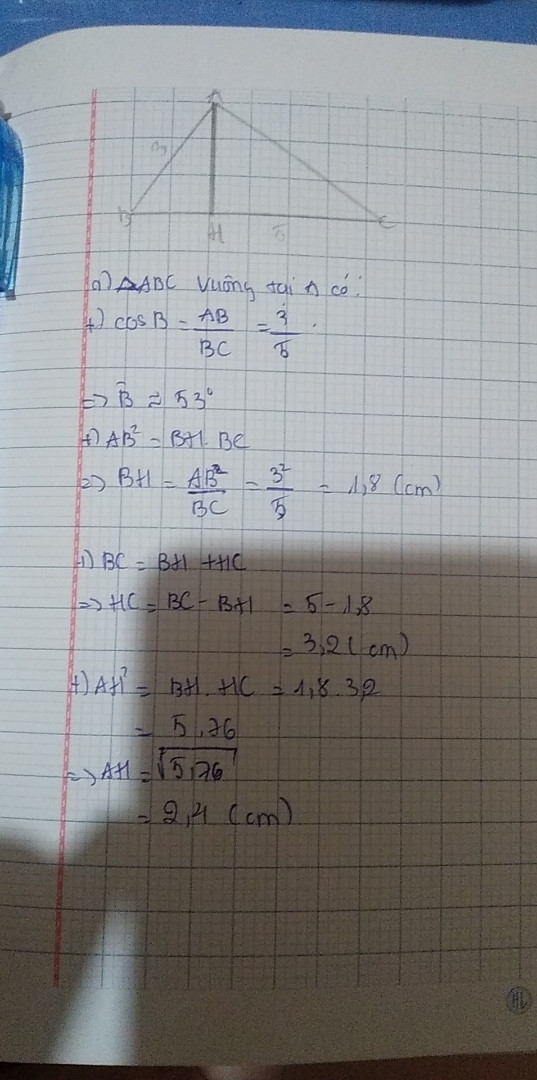 A
3
B
H
5
C
a) △ABC vuông tại A có:
+) cos B = AB/BC = 3/5.
=> B̂ ≈ 53°
+) AB² = BH. BC
=> BH = AB²/BC = 3²/5 = 1,8 (cm)
+) BC = BH + HC
=> HC = BC - BH = 5 - 1,8
= 3,2 (cm)
+) AH² = BH. HC = 1,8. 3,2
= 5,76
=> AH = √5,76
= 2,4 (cm)
HL